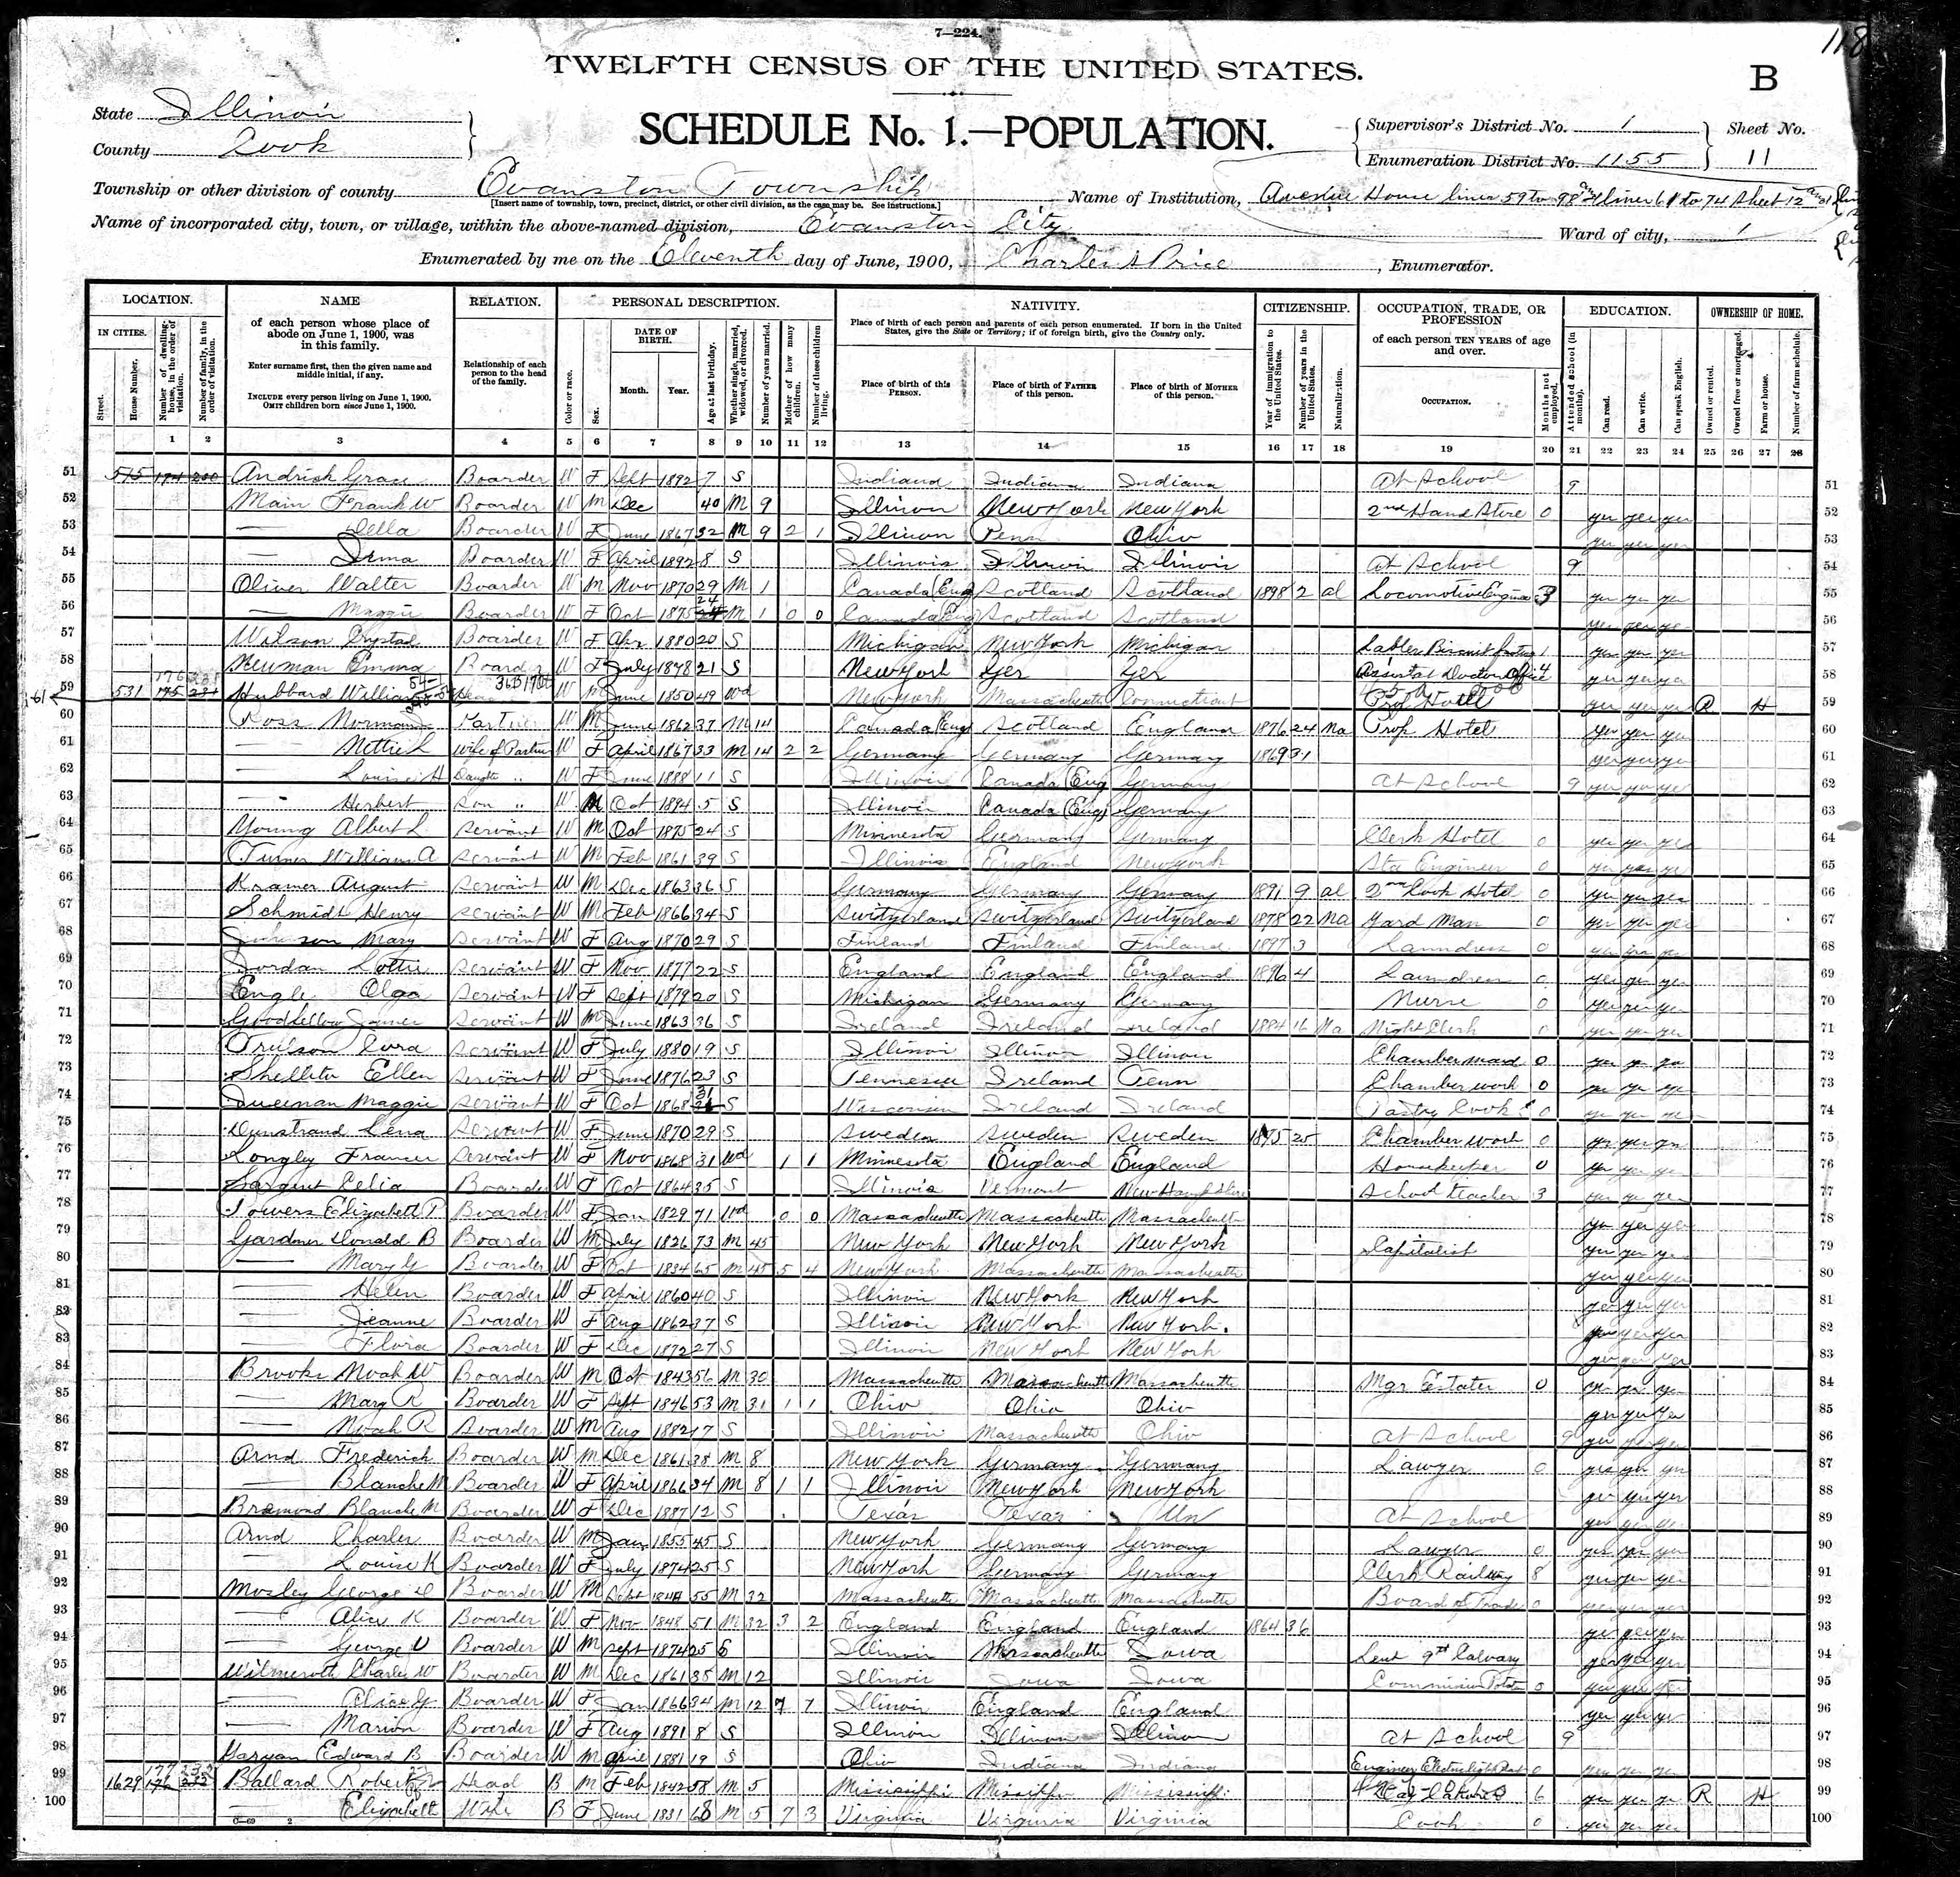 7—224.
118
TWELFTH CENSUS OF THE UNITED STATES.
B
State Illinois
County Cook
SCHEDULE No. 1.—POPULATION.
Supervisor's District No. 1
Enumeration District No. 1155
Sheet No.
11
Township or other division of county Evanston Township
[Insert name of township, town, precinct, district, or other civil division, as the case may be. See instructions.]
Name of Institution, Avenue House lines 59 to 98 and lines 61 to 74 Sheet 12
Name of incorporated city, town, or village, within the above-named division, Evanston City
Ward of city, 1
Enumerated by me on the Eleventh day of June, 1900, Charles A Price, Enumerator.
LOCATION. NAME RELATION. PERSONAL DESCRIPTION. NATIVITY. CITIZENSHIP. OCCUPATION, TRADE, OR PROFESSION EDUCATION. OWNERSHIP OF HOME.
IN CITIES.
Street.
House Number.
Number of dwelling-house, in the order of visitation.
Number of family, in the order of visitation.
of each person whose place of abode on June 1, 1900, was in this family.
Enter surname first, then the given name and middle initial, if any.
INCLUDE every person living on June 1, 1900.
OMIT children born since June 1, 1900.
Relationship of each person to the head of the family.
Color or race.
Sex.
DATE OF BIRTH.
Month. Year.
Age at last birthday.
Whether single, married, widowed, or divorced.
Number of years married.
Mother of how many children.
Number of these children living.
Place of birth of each person and parents of each person enumerated. If born in the United States, give the State or Territory; if of foreign birth, give the Country only.
Place of birth of this PERSON.
Place of birth of FATHER of this person.
Place of birth of MOTHER of this person.
Year of immigration to the United States.
Number of years in the United States.
Naturalization.
of each person TEN YEARS of age and over.
OCCUPATION.
Months not employed.
Attended school (in months).
Can read.
Can write.
Can speak English.
Owned or rented.
Owned free or mortgaged.
Farm or house.
Number of farm schedule.
1 2 3 4 5 6 7 8 9 10 11 12 13 14 15 16 17 18 19 20 21 22 23 24 25 26 27 28
51 515 174 200 Andrick Grace Boarder W F Sept 1892 7 S Indiana Indiana Indiana At School 9 51
52 Main Frank W Boarder W M Dec 40 M 9 Illinois New York New York 2nd Hand Store 0 yes yes yes 52
53 — Della Boarder W F June 1867 32 M 9 2 1 Illinois Penn Ohio yes yes yes 53
54 — Irma Boarder W F April 1892 8 S Illinois Illinois Illinois At School 9 54
55 Oliver Walter Boarder W M Nov 1870 29 M 1 Canada (Eng Scotland Scotland 1898 2 al Locomotive Engineer 3 yes yes yes 55
56 — Maggie Boarder W F Oct 1875 24 M 1 0 0 Canada Eng Scotland Scotland yes yes yes 56
57 Wilson Crystal Boarder W F Apr 1880 20 S Michigan New York Michigan 1 yes yes yes 57
58 Newman Emma Boarder W F July 1878 21 S New York Ger Ger Assistat Doctors Office 4 yes yes yes 58
59 531 175 231 Hubbard William W M June 1850 49 Wd New York Massachusetts Connecticut Prop Hotel yes yes yes R H 59
60 Ross Norman Partner W M June 1862 37 M 14 Canada (Eng) Scotland England 1876 24 Na Prop Hotel yes yes yes 60
61 — Nettie L wife of Partner W F April 1867 33 M 14 2 2 Germany Germany Germany 1869 31 yes yes yes 61
62 — Louise H Daughter " W F June 1888 11 S Illinois Canada (Eng Germany At School 9 yes yes yes 62
63 — Herbert son " W M Oct 1894 5 S Illinois Canada (Eng) Germany 63
64 Young Albert L servant W M Oct 1875 24 S Minnesota Germany Germany Clerk Hotel 0 yes yes yes 64
65 Turner William A servant W M Feb 1861 39 S Illinois England New York Sta Engineer 0 yes yes yes 65
66 Kramer August servant W M Dec 1863 36 S Germany Germany Germany 1891 9 al 2nd Cook Hotel 0 yes yes yes 66
67 Schmidt Henry servant W M Feb 1866 34 S Switzerland Switzerland Switzerland 1878 22 Na Yard Man 0 yes yes yes 67
68 Johnson Mary servant W F Aug 1870 29 S Finland Finland Finland 1897 3 Laundress 0 yes yes yes 68
69 Jordan Lottie servant W F Nov 1877 22 S England England England 1896 4 Laundress 0 yes yes yes 69
70 Engle Olga servant W F Sept 1879 20 S Michigan Germany Germany Nurse 0 yes yes yes 70
71 Goodfellow James servant W M June 1863 36 S Ireland Ireland Ireland 1884 16 Na Night Clerk 0 yes yes yes 71
72 Cora servant W F July 1880 19 S Illinois Illinois Illinois Chambermaid 0 yes yes yes 72
73 Ellen servant W F June 1876 23 S Tennessee Ireland Tenn Chamber work 0 yes yes yes 73
74 Maggie servant W F Oct 1868 31 S Wisconsin Ireland Ireland Pastry Cook 0 yes yes yes 74
75 Lena servant W F June 1870 29 S Sweden Sweden Sweden 1875 25 Chamber work 0 yes yes yes 75
76 Longley Frances servant W F Nov 1868 31 Wd 1 1 Minnesota England England Housekeeper 0 yes yes yes 76
77 Sargent Celia Boarder W F Oct 1864 35 S Illinois Vermont New Hampshire School teacher 3 yes yes yes 77
78 Towers Elizabeth P Boarder W F Jan 1829 71 Wd 0 0 Massachusetts Massachusetts Massachusetts yes yes yes 78
79 Gardner Donald B Boarder W M July 1826 73 M 45 New York New York New York Capitalist yes yes yes 79
80 — Mary G Boarder W F Oct 1834 65 M 45 5 4 New York Massachusetts Massachusetts yes yes yes 80
81 — Helen Boarder W F April 1860 40 S Illinois New York New York yes yes yes 81
82 — Jeanne Boarder W F Aug 1862 37 S Illinois New York New York. yes yes yes 82
83 — Flora Boarder W F Dec 1872 27 S Illinois New York New York yes yes yes 83
84 Brooks Noah W Boarder W M Oct 1843 56 M 30 Massachusetts Massachusetts Massachusetts Mgr Estates 0 yes yes yes 84
85 — Mary R Boarder W F Sept 1846 53 M 31 1 1 Ohio Ohio Ohio yes yes yes 85
86 — Noah R Boarder W M Aug 1882 17 S Illinois Massachusetts Ohio At School 9 yes yes yes 86
87 Arnd Frederick Boarder W M Dec 1861 38 M 8 New York Germany Germany Lawyer 0 yes yes yes 87
88 — Blanche M Boarder W F April 1866 34 M 8 1 1 Illinois New York New York yes yes yes 88
89 Blanche M Boarder W F Dec 1887 12 S Texas Texas Un At School yes yes yes 89
90 Arnd Charles Boarder W M Jan 1855 45 S New York Germany Germany Lawyer 0 yes yes yes 90
91 — Louise K Boarder W F July 1874 25 S New York Germany Germany Clerk Railway 8 yes yes yes 91
92 Mosley George D Boarder W M Sept 1844 55 M 32 Massachusetts Massachusetts Massachusetts Board of Trade 0 yes yes yes 92
93 — Alice K Boarder W F Nov 1848 51 M 32 3 2 England England England 1864 36 yes yes yes 93
94 — George U Boarder W M Sept 1874 25 S Illinois Massachusetts Iowa Leut 9th Calvary yes yes yes 94
95 Wilmeroth Charles W Boarder W M Dec 1861 38 M 12 Illinois Iowa Iowa 0 yes yes yes 95
96 — Alice G Boarder W F Jan 1866 34 M 12 7 7 Illinois England England yes yes yes 96
97 — Marion Boarder W F Aug 1891 8 S Illinois Illinois Illinois At School 9 97
98 Edward B Boarder W M April 1881 19 S Ohio Indiana Indiana 0 yes yes yes 98
99 1629 Ballard Robert Head B M Feb 1842 58 M 5 Mississippi Mississippi Mississippi Day Laborer 6 yes yes yes R H 99
100 — Elizabeth Wife B F June 1831 68 M 5 7 3 Virginia Virginia Virginia Cook 0 yes yes yes 100